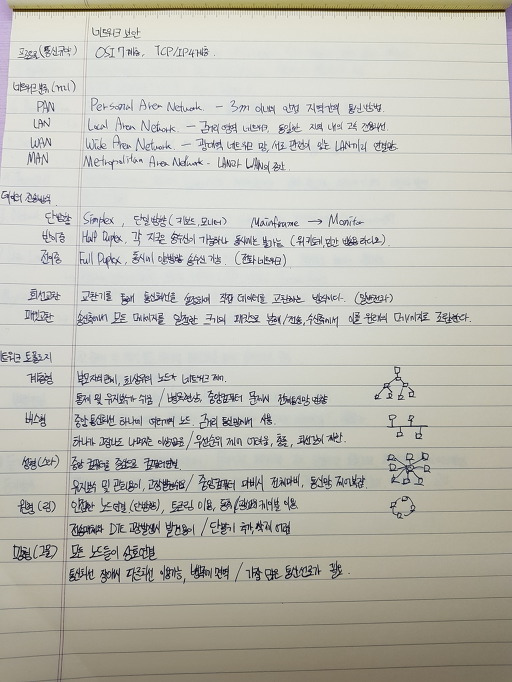 네트워크 보안
프로토콜(통신규약) OSI 7계층, TCP/IP 4계층.
네트워크 분류 (거리)
PAN Personal Area Network. - 3m 이내의 인접 지역간의 통신방법.
LAN Local Area Network. - 근거리 영역 네트워크, 동일한 지역 내의 고속 전용회선
WAN Wide Area Network. - 광대역 네트워크 망, 서로 관련이 있는 LAN끼리 연결망.
MAN Metropolitan Area Network - LAN과 WAN의 중간.
데이터 전송방식
단방향 Simplex, 단일방향 (키보드, 모니터) Mainframe → Monitor
반이중 Half Duplex, 각 지국은 송수신이 가능하나 동시에는 불가능 (워키토키, 민간 방송 라디오)
전이중 Full Duplex, 동시에 양방향 송수신 가능. (전화 네트워크)
회선교환 교환기를 통해 통신회선을 설정하여 직접 데이터를 교환하는 방식이다. (일반전화)
패킷교환 송신측에서 모든 메시지를 일정한 크기의 패킷으로 분해/전송, 수신측에서 이를 원래의 메시지로 조립한다.
네트워크 토폴로지
계층형
통제 및 유지보수가 쉬움 / 병목현상, 중앙컴퓨터 문제시 전체통신망 영향
버스형 중앙 통신회선 하나에 여러개의 노드. 근거리 통신망에서 사용.
하나가 고장나도 나머지는 이상없음 / 우선순위 제어 어려움, 충돌,
성형 (스타) 중앙 컴퓨터를 중심으로 컴퓨터연결
유지보수 및 관리용이, / 중앙컴퓨터 마비시 전체마비, 통신망 제어복잡
원형 (링) 인접한 노드연결 (단방향), 토큰링 이용, 동축/ 케이블 이용
전송매체와 DTE 고장발견시 발견용이 / 단말기 추가, 삭제 어렵
망형 (그물) 모든 노드들이 상호연결
통신회선 장애시 다른회선 이용가능, / 가장 많은 통신선로가 필요.